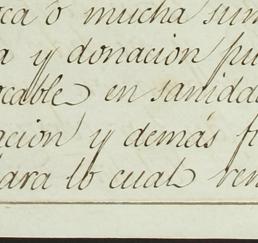 ca ó mucha sum
a y donacion pu
ocable en sanidad
acion y demás fi
para lo cual ren